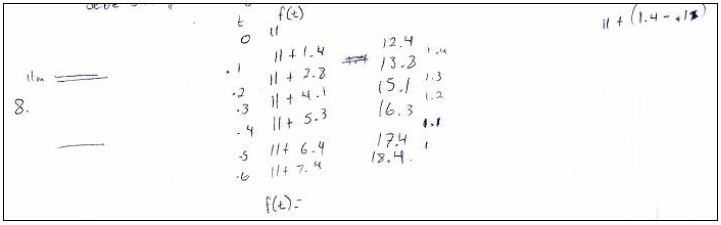 t f(t)
0 11
.1 11 + 1.4 12.4
.2 11 + 2.8 13.8 1.4
.3 11 + 4.1 15.1 1.3
.4 11 + 5.3 16.3 1.2
.5 11 + 6.4 17.4 1.1
.6 11 + 7.4 18.4. 1
f(t) =
11m
8.
11 + (1.4 -